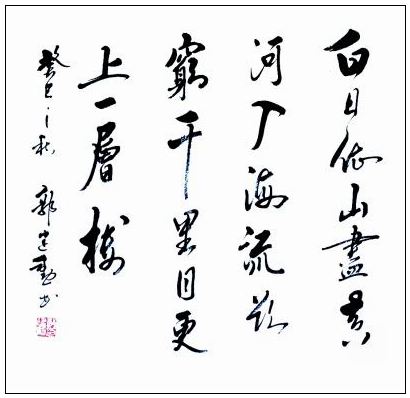 白日依山盡黃
河入海流欲
窮千里目更
上一層樓
癸巳之秋 郭建书